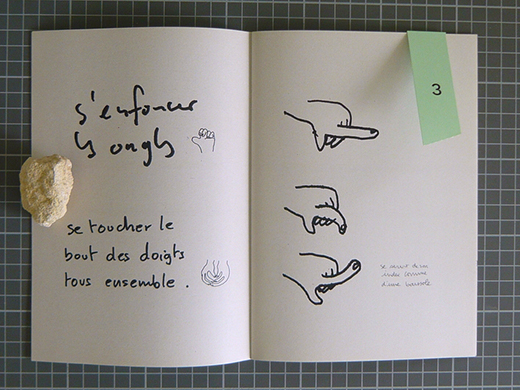 s'enfoncer
ls ongls
se toucher le
bout des doigts
tous ensemble.
3
se servir de son
index comme
d'une